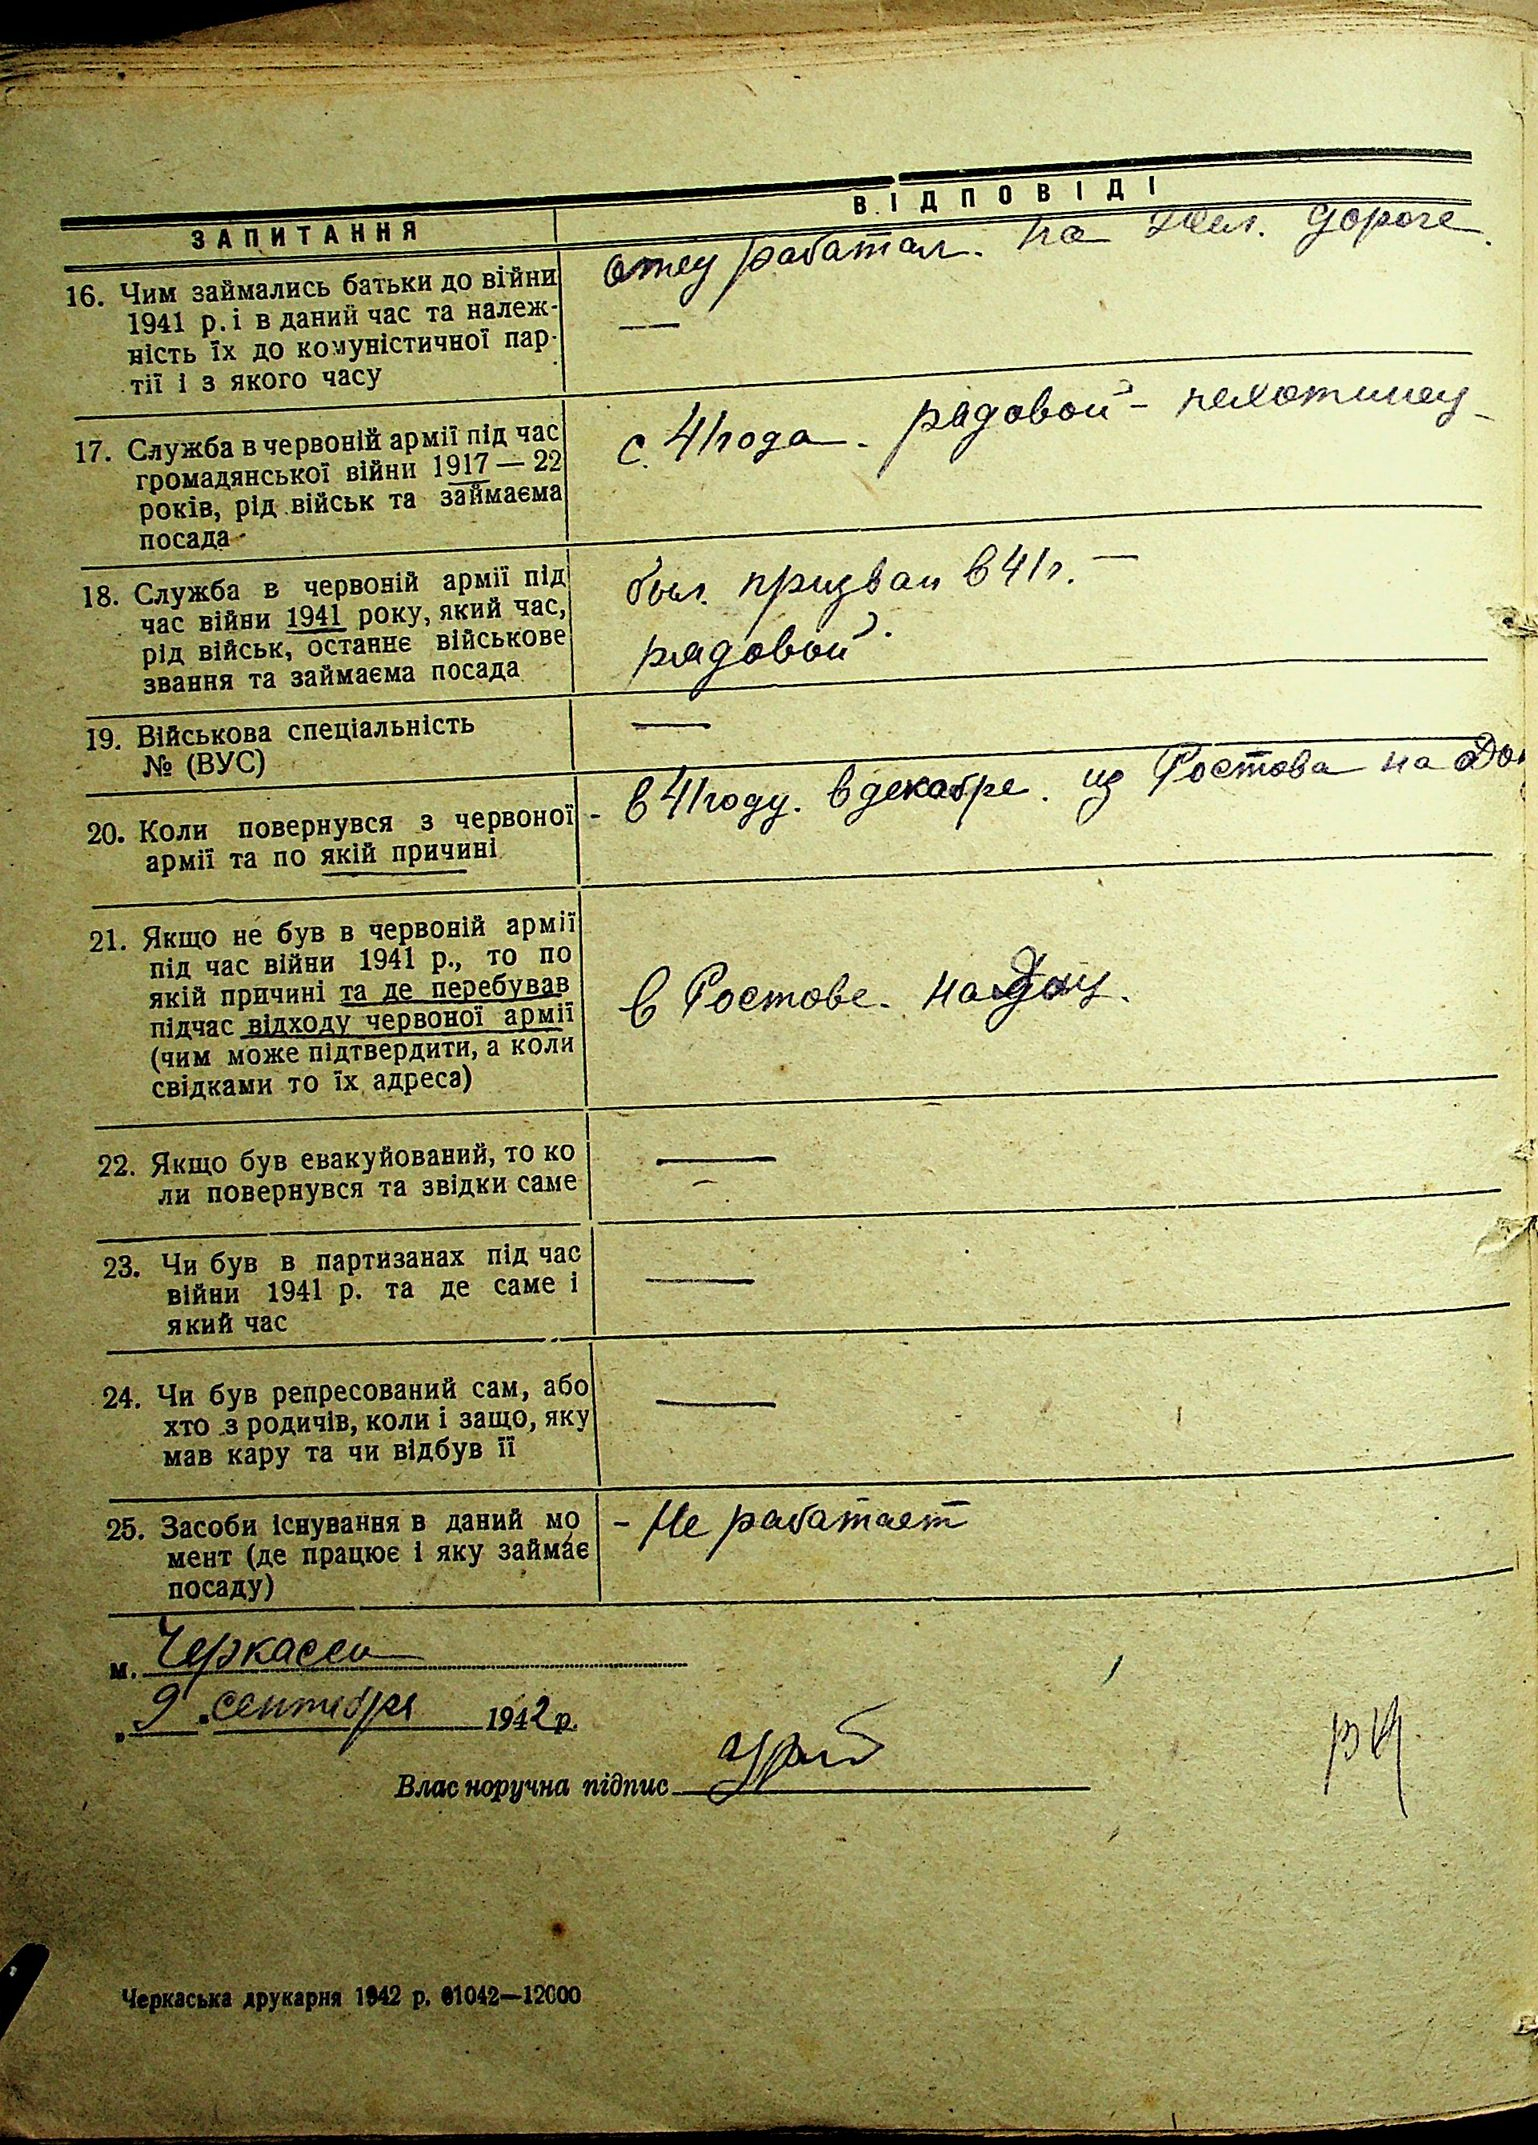 ЗАПИТАННЯ
ВІДПОВІДІ
16. Чим займались батьки до війни
1941 р. і в даний час та належ-
ність їх до комуністичної пар-
тії і з якого часу
отец работал. на Жел. дороге.
—
17. Служба в червоній армії під час
громадянської війни 1917 — 22
років, рід військ та займаєма
посада
с. 41 года - рядовой - пехотинец
18. Служба в червоній армії під
час війни 1941 року, який час,
рід військ, останнє військове
звання та займаєма посада
был призван в 41 г. —
рядовой.
19. Військова спеціальність
№ (ВУС)
—
20. Коли повернувся з червоної
армії та по якій причині
- в 41 году. в декабре. из Ростова на Дон
21. Якщо не був в червоній армії
під час війни 1941 р., то по
якій причині та де перебував
підчас відходу червоної армії
(чим може підтвердити, а коли
свідками то їх адреса)
в Ростове. на Дону.
22. Якщо був евакуйований, то ко
ли повернувся та звідки саме
—
23. Чи був в партизанах під час
війни 1941 р. та де саме і
який час
—
24. Чи був репресований сам, або
хто з родичів, коли і защо, яку
мав кару та чи відбув її
—
25. Засоби існування в даний мо
мент (де працює і яку займає
посаду)
- Не работает
м. Черкассы
„ 9 " сентября 1942 р.
Влас норучна підпис
Черкаська друкарня 1942 р. 01042—12000